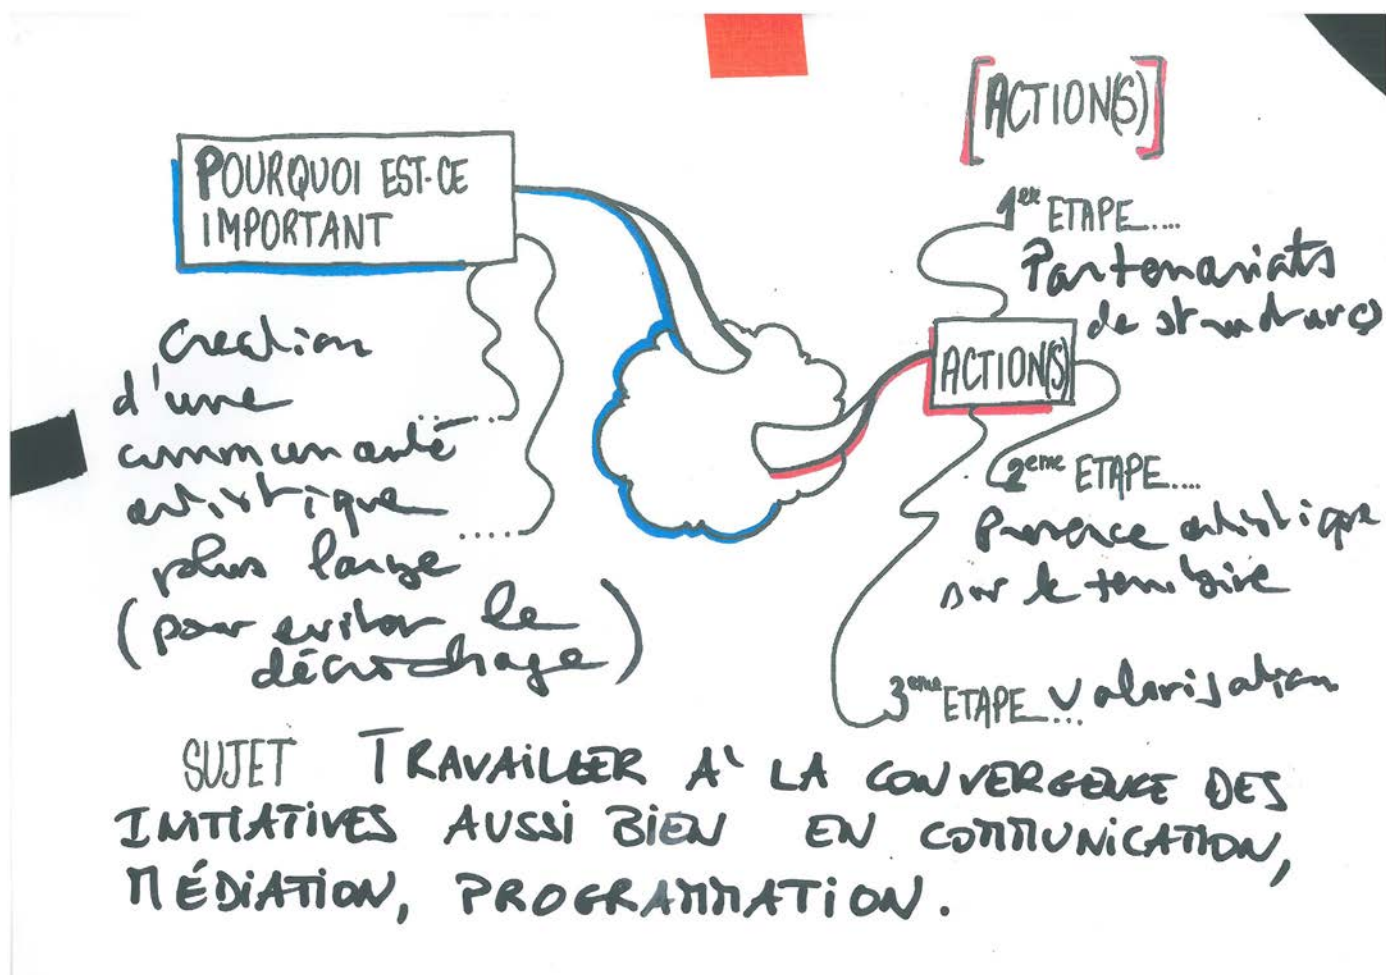 [ACTION(S)]
POURQUOI EST-CE
IMPORTANT
Creation
d'une
communauté
artistique
plus large
(pour eviter le
décrochage)
1ere ETAPE.....
Partenariats
de structures
ACTION(S)
2eme ETAPE....
Presence artistique
sur le territoire
3eme ETAPE.... Valorisation
SUJET TRAVAILLER A' LA CONVERGENCE DES
INITIATIVES AUSSI BIEN EN COMMUNICATION,
MÉDIATION, PROGRAMMATION.